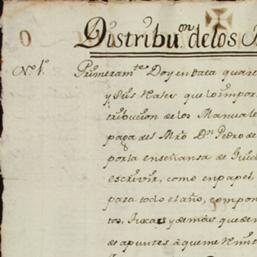 Distribu.on de los
No 1o Primeram.te Doy en Data quare
y seis Reales que lo impor
tribucion de los Manuale
paga del Mro Dn Pedro de
por la enseñansa de
escrivir, como en papel
para todo el año, compon
tos, y demas que
de apuntes â que me